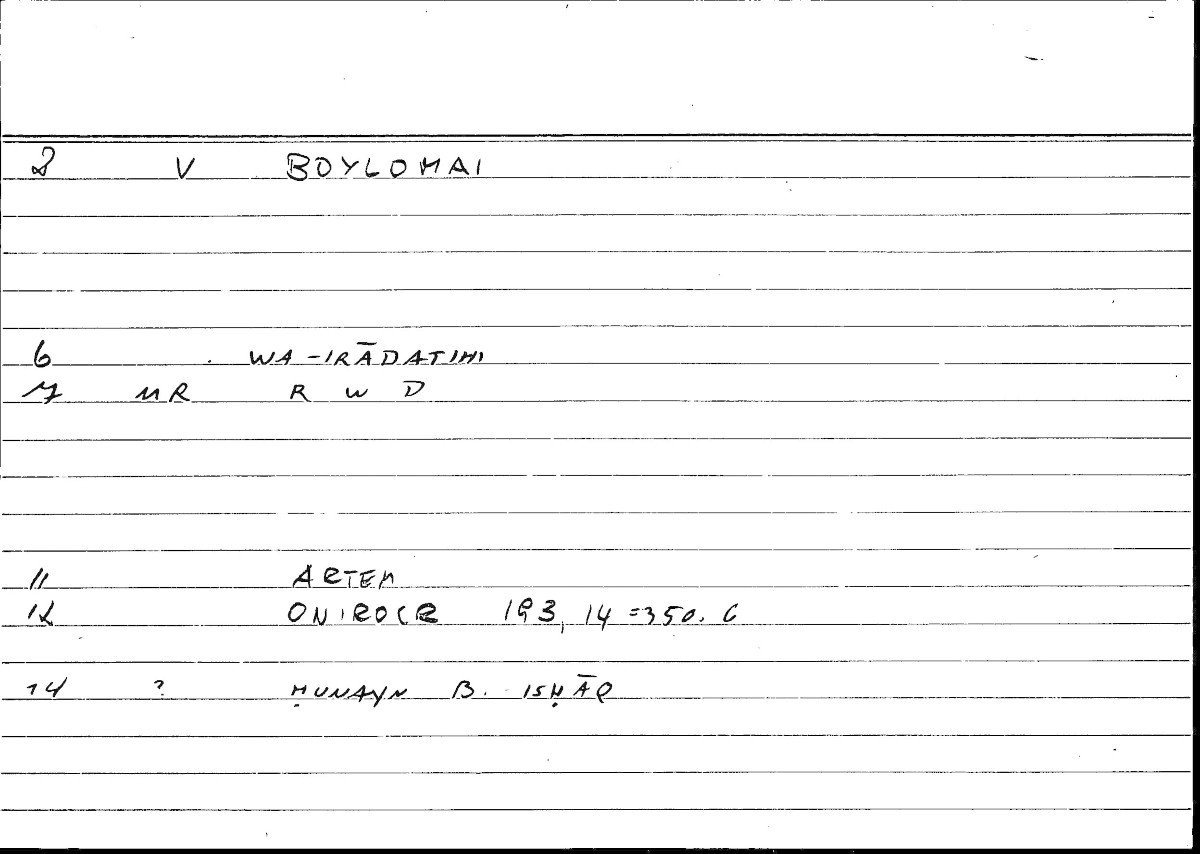 2 V BOYLOMAI
6 . WA-IRĀDATIHI
7 MR R W D
11 ARTEM
12 ONIROCR 193, 14 =350. 6
14 ? ḤUNAYN B. ISḤĀQ